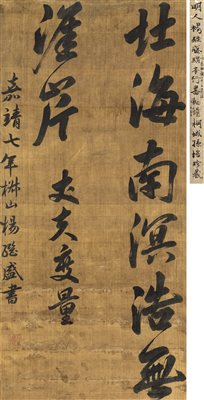 明人楊繼盛
北海南溟浩無
涯岸 丈夫度量
嘉靖七年椒山楊繼盛書